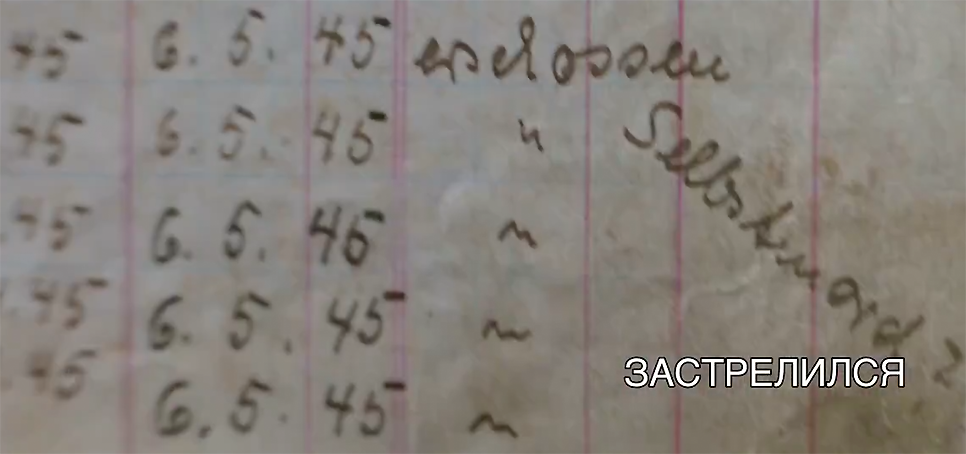 45 6. 5. 45 erschossen
45 6. 5. 45 " Selbstmord ?
.45 6. 5. 45 "
.45 6. 5. 45 "
.45 6. 5. 45 "
ЗАСТРЕЛИЛСЯ